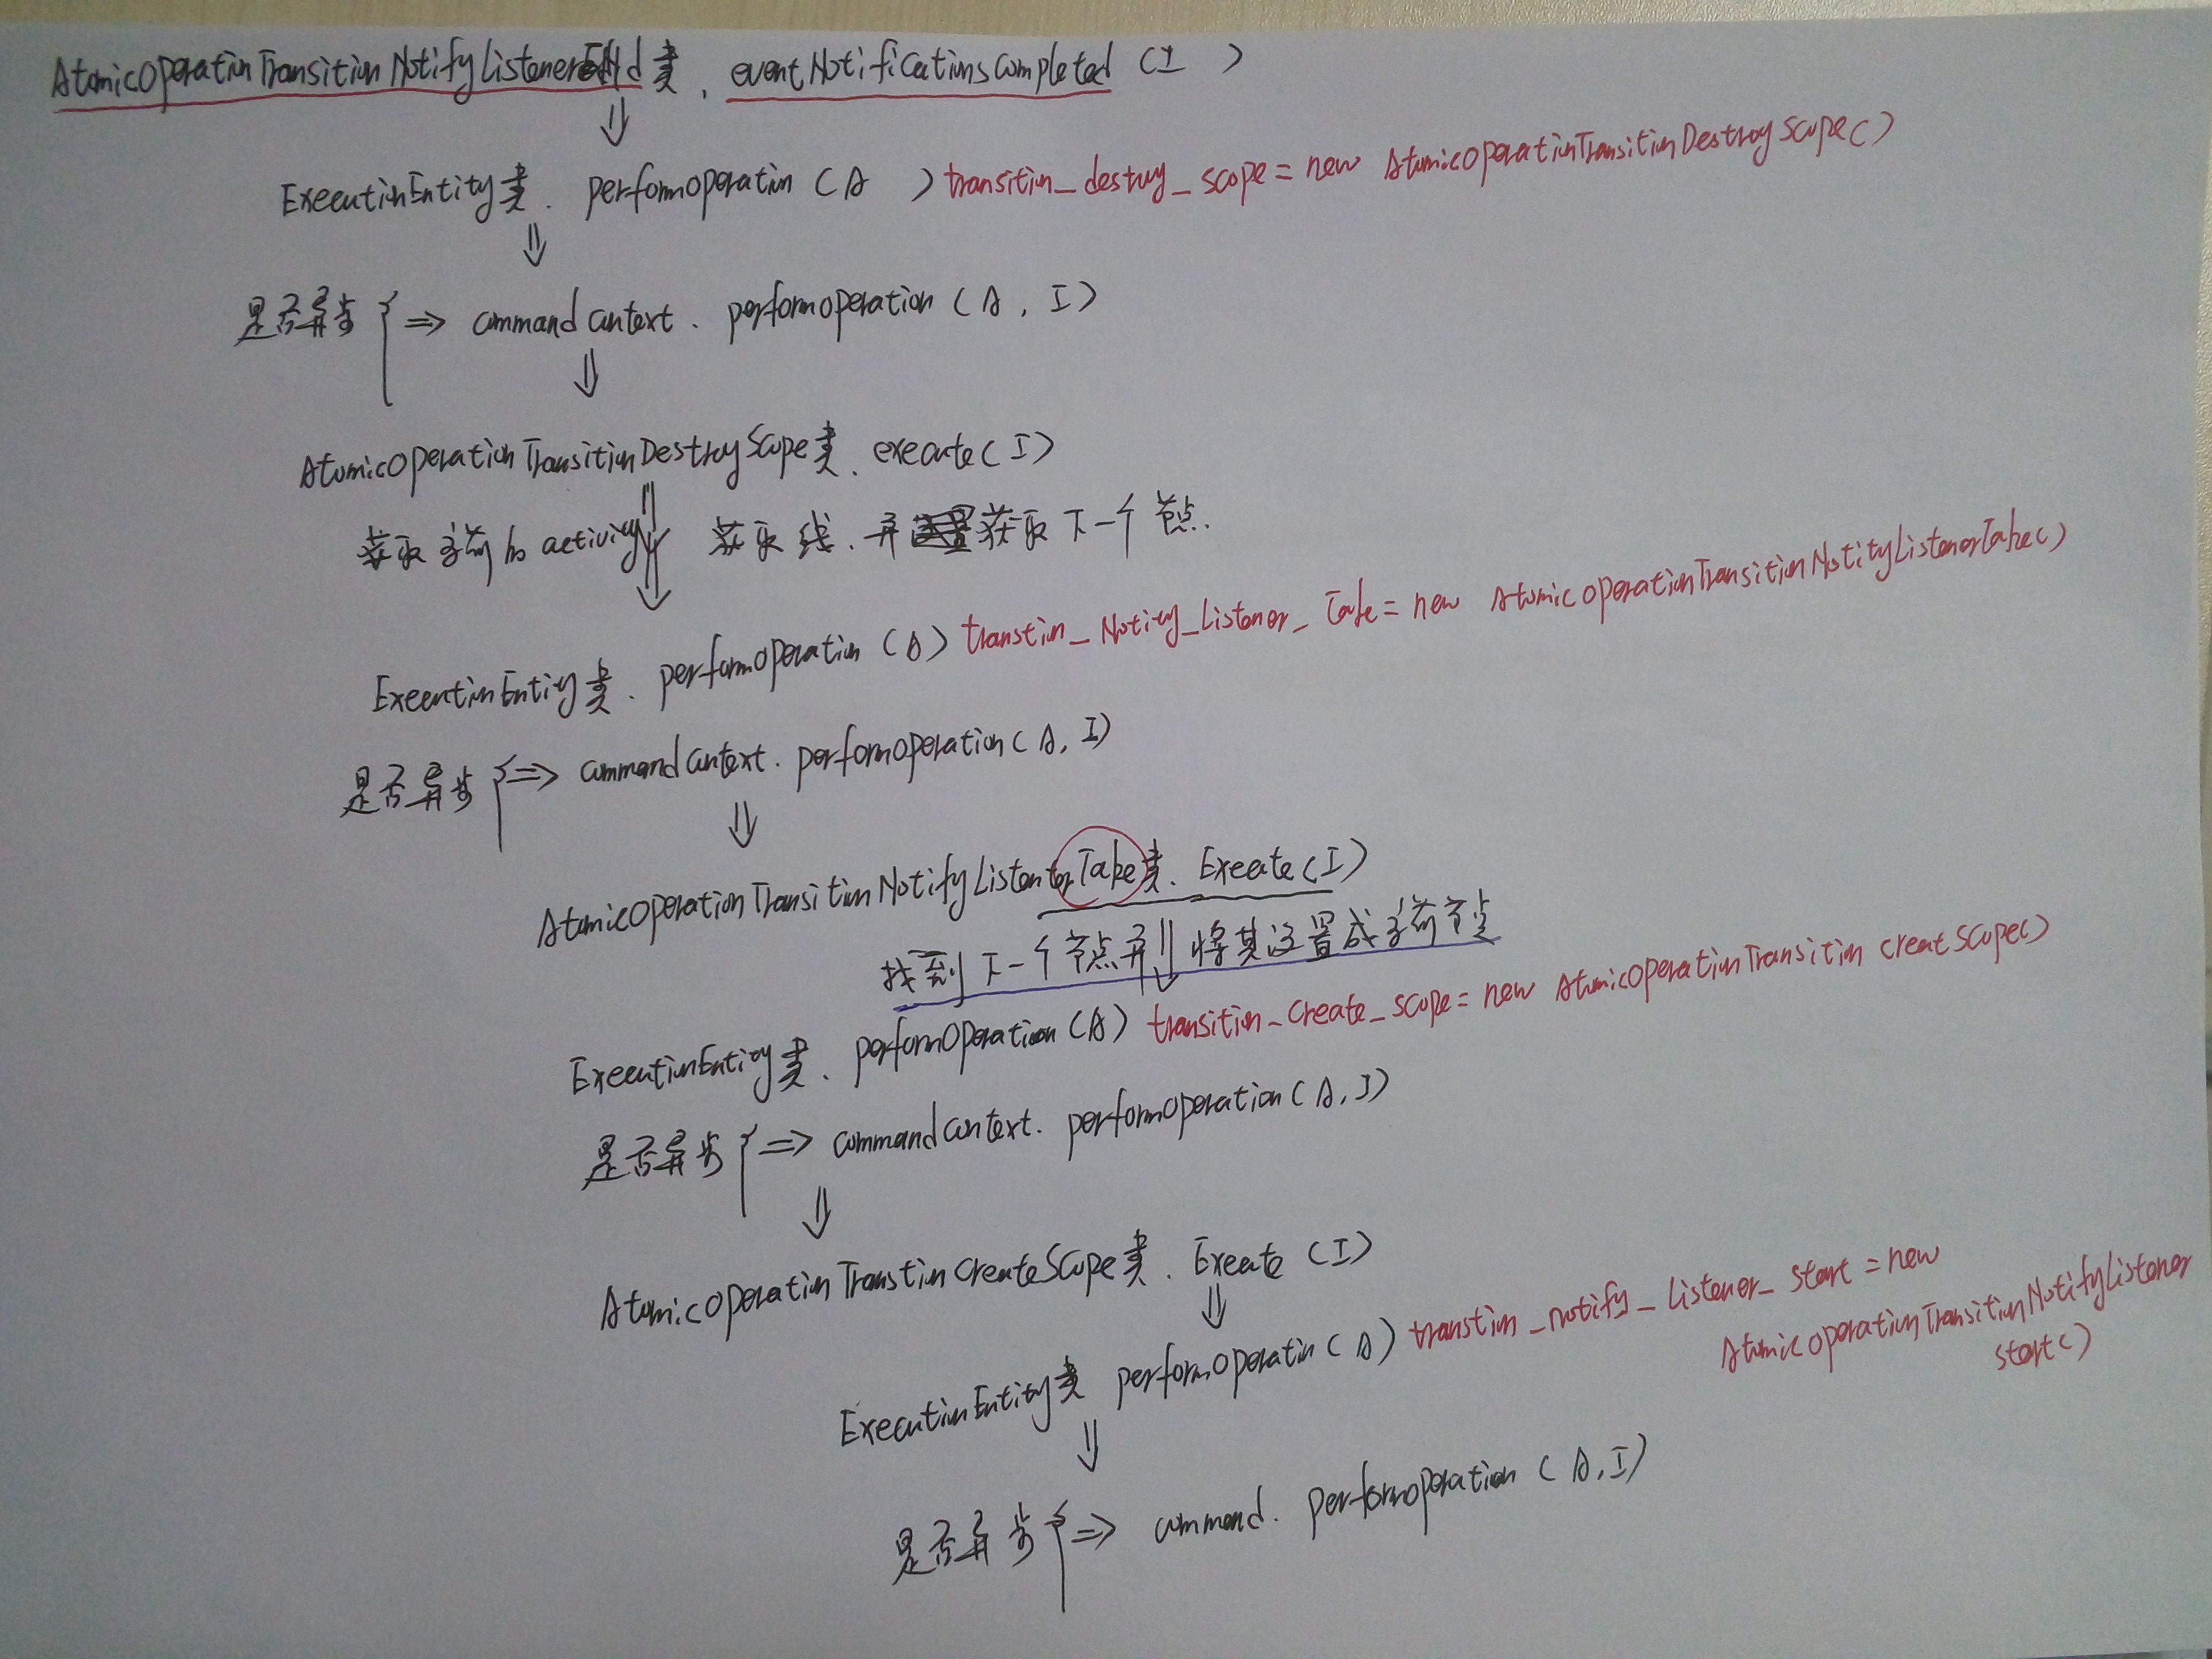 AtomicOperationTransitionNotifyListenerEnd类.eventNotificationsCompleted(I )
⇓
ExecutionEntity类.performOperation(A ) transition_destroy_scope=new AtomicOperationTransitionDestroyScope()
⇓
是否异步{⇒ commandContext.performOperation(A,I)
⇓
AtomicOperationTransitionDestroyScope类.execute(I)
获取当前的activity 获取线.并获取下一个节点.
⇓
ExecutionEntity类.performOperation(A) transtion_Notify_Listener_Take=new AtomicOperationTransitionNotifyListenerTake()
是否异步{⇒ commandContext.performOperation(A,I)
⇓
AtomicOperationTransitionNotifyListenterTake类.Execute(I)
找到下一个节点并将其设置成当前节点
⇓
ExecutionEntity类.performOperation(A) transition_create_scope=new AtomicOperationTransition creatScope()
是否异步{⇒ commandContext.performOperation(A,I)
⇓
AtomicOperationTranstionCreateScope类.Execute(I)
⇓
ExecutionEntity类 performOperation(A) transtion_notify_Listener_start=new
AtomicOperationTransitionNotifyListener
start()
⇓
是否异步{⇒ command.performOperation(A,I)